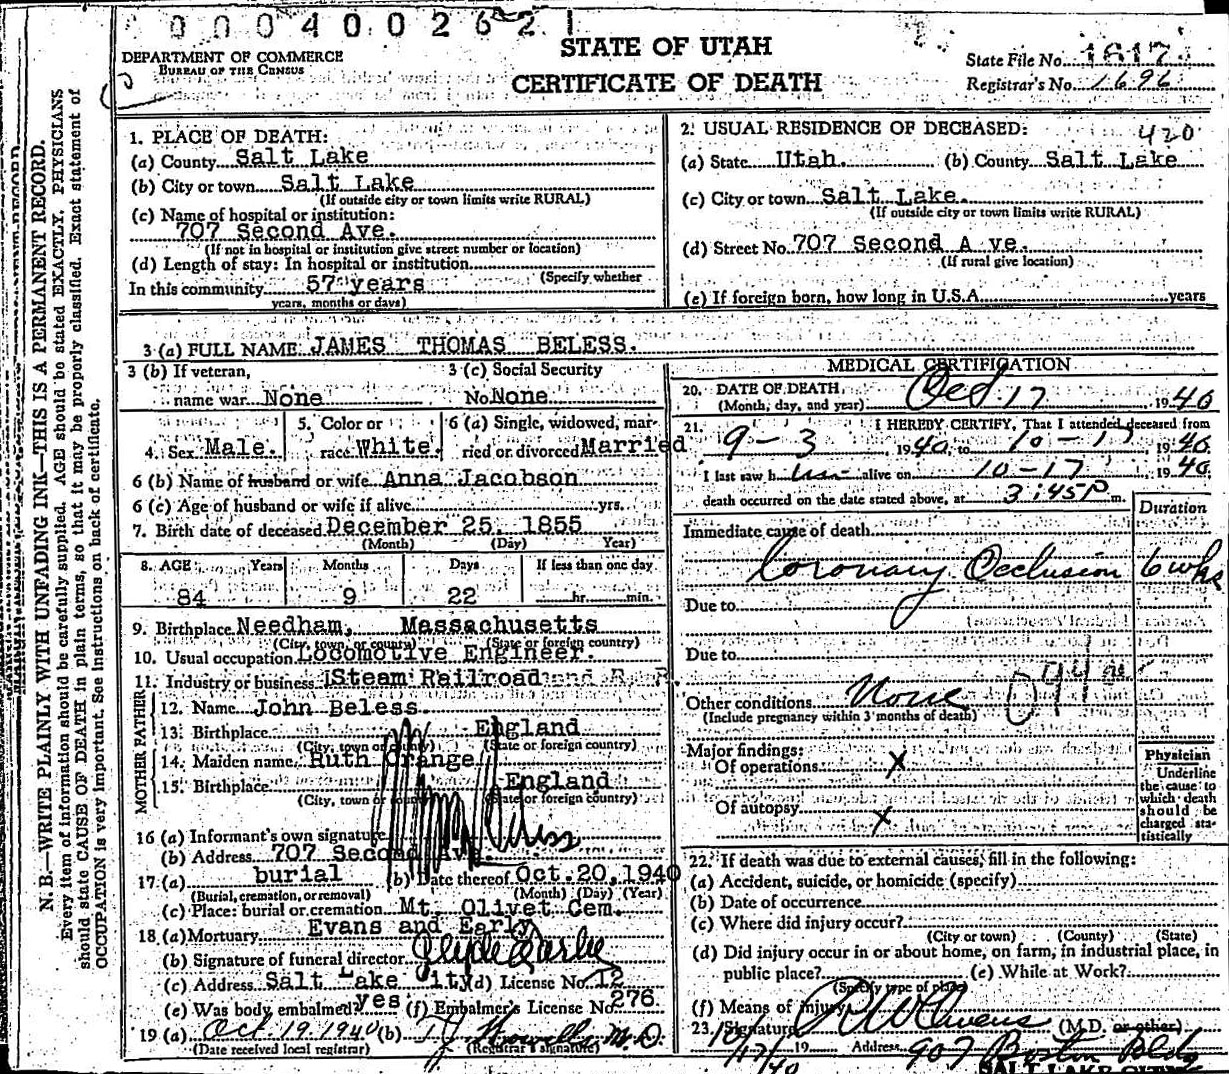 0004002621
STATE OF UTAH
CERTIFICATE OF DEATH
DEPARTMENT OF COMMERCE
BUREAU OF THE CENSUS
State File No. 1617
Registrar's No. 1696
N. B.—WRITE PLAINLY WITH UNFADING INK—THIS IS A PERMANENT RECORD.
Every item of information should be carefully supplied. AGE should be stated EXACTLY. PHYSICIANS
should state CAUSE OF DEATH in plain terms, so that it may be properly classified. Exact statement of
OCCUPATION is very important. See instructions on back of certificate.
1. PLACE OF DEATH:
(a) County Salt Lake
(b) City or town Salt Lake
(If outside city or town limits write RURAL)
(c) Name of hospital or institution:
707 Second Ave.
(If not in hospital or institution give street number or location)
(d) Length of stay: In hospital or institution
(Specify whether
In this community 57 years
years, months or days)
2. USUAL RESIDENCE OF DECEASED: 420
(a) State Utah. (b) County Salt Lake
(c) City or town Salt Lake.
(If outside city or town limits write RURAL)
(d) Street No. 707 Second A ve.
(If rural give location)
(e) If foreign born, how long in U.S.A. years
3 (a) FULL NAME JAMES THOMAS BELESS.
3 (b) If veteran, 3 (c) Social Security
name war None No. None
4. Sex Male. 5. Color or race White. 6 (a) Single, widowed, married or divorced Married
6 (b) Name of husband or wife Anna Jacobson
6 (c) Age of husband or wife if alive yrs.
7. Birth date of deceased December 25, 1855
(Month) (Day) Year)
8. AGE Years Months Days If less than one day
84 9 22 hr. min.
9. Birthplace Needham, Massachusetts
(City, town, or county) (State or foreign country)
10. Usual occupation Locomotive Engineer.
11. Industry or business Steam Railroad
FATHER
12. Name John Beless.
13. Birthplace England
(City, town or county) (State or foreign country)
MOTHER
14. Maiden name Ruth Orange
15. Birthplace England
(City, town or county) (State or foreign country)
16 (a) Informant's own signature
(b) Address 707 Second Ave.
17. (a) burial (b) Date thereof Oct. 20, 1940
(Burial, cremation, or removal) (Month) (Day) (Year)
(c) Place: burial or cremation Mt. Olivet Cem.
18 (a) Mortuary Evans and Early
(b) Signature of funeral director
(c) Address Salt Lake ity (d) License No. 12
(e) Was body embalmed yes (f) Embalmer's License No. 276
19 (a) Oct. 19. 1940 (b) M. D.
(Date received local registrar) (Registrar's signature)
MEDICAL CERTIFICATION
20. DATE OF DEATH
(Month, day, and year) Oct. 17 1940
21. I HEREBY CERTIFY, That I attended deceased from
9-3 1940, to 10-17 1940.
I last saw him alive on 10-17 1940,
death occurred on the date stated above, at 3:45 P m.
Duration
Immediate cause of death
Coronary Occlusion 6 wks
Due to
Due to
Other conditions None
(Include pregnancy within 3 months of death)
094
Major findings:
Of operations X
Of autopsy X
Physician
Underline
the cause to
which death
should be
charged sta-
tistically
22. If death was due to external causes, fill in the following:
(a) Accident, suicide, or homicide (specify)
(b) Date of occurrence
(c) Where did injury occur?
(City or town) (County) (State)
(d) Did injury occur in or about home, on farm, in industrial place, in
public place? (e) While at Work?
(Specify type of place)
(f) Means of injury
23. Signature R W Owens (M.D. or other)
10/17/40 19 Address 907 Boston Bldg
SALT LAKE CITY